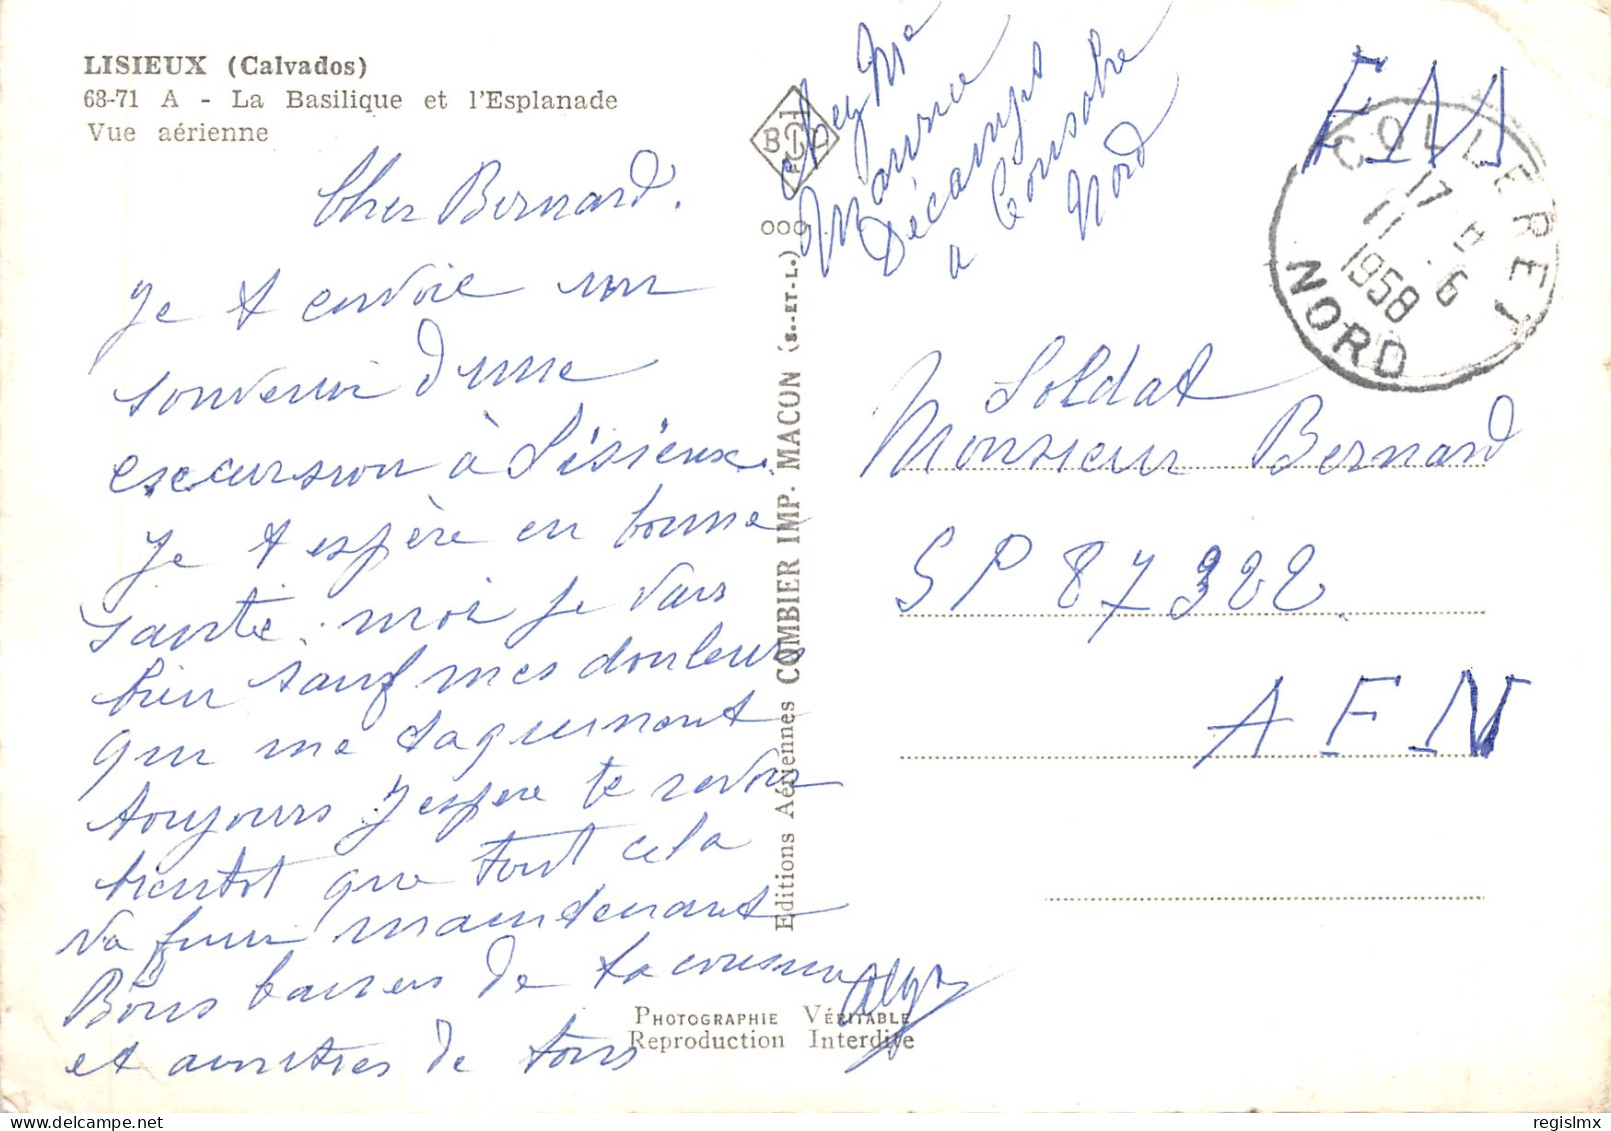 LISIEUX (Calvados)
68-71 A - La Basilique et l'Esplanade
Vue aérienne
Cher Bernard.
Je t envoie un
souvenir d'une
excursion à Lisieux.
Je t espère en bonne
santé. moi je vais
bien sauf mes douleurs
qui me taquinent
toujours J espère te revoir
bientot que tout cela
va finir maintenant
Bons baisers de ta cousine
et autres de tous
chez Mr
Maurice
Décamps
a Cousolre
Nord
BIC
ooo
Editions Aériennes COMBIER IMP. MACON (S.-ET-L.)
PHOTOGRAPHIE VÉRITABLE
Reproduction Interdite
FM
COLLERET
17 H
11 . 6
1958
NORD
Soldat
Monsieur Bernard
SP 87322
A F N
regislmx
delcampe.net